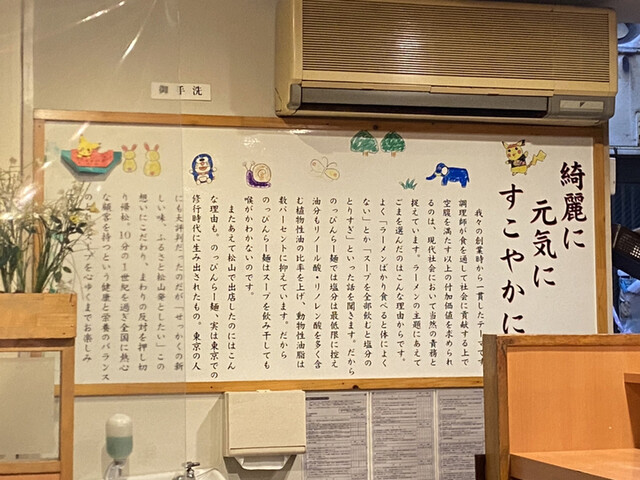 御手洗
綺麗に
元気に
すこやかに
我々の創業時から一貫したテーマです
調理師が食を通して社会に貢献する上で
空腹を満たす以上の付加価値を求められ
るのは、現代社会において当然の責務と
捉えています。ラーメンの主題にあえて
ごまを選んだのはこんな理由からです。
よく「ラーメンばかり食べると体によく
ない」とか「スープを全部飲むと塩分の
とりすぎ」といった話を聞きます。だから
のっぴんらー麺では塩分は最低限に控え
油分もリノール酸・リノレン酸を多く含
む植物性油の比率を上げ、動物性油脂は
数パーセントに抑えています。だから
のっぴんらー麺はスープを飲み干しても
喉がかわかないのです。
またあえて松山で出店したのにはこん
な理由も。のっぴんらー麺、実は東京での
修行時代に生み出されたもの。東京の人
にも大評判だったのだが「せっかくの新
しい味、ふるさと松山発としたい」この
想いにこだわり、まわりの反対を押し切
り帰松。10分の1世紀を過ぎ全国に熱心
な顧客を持つという健康と栄養のバランス
スープを心ゆくまでお楽しみ